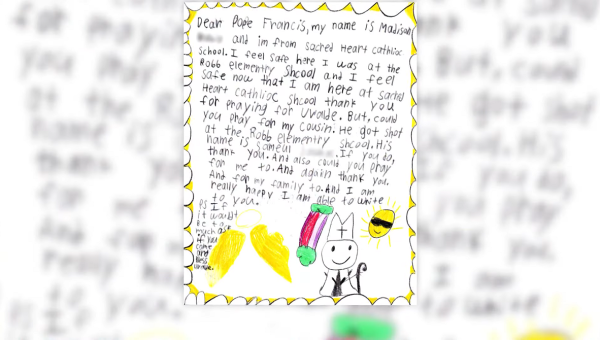 Dear Pope Francis, my name is Madison
and im from sacred Heart cathlioc
school. I feel safe here I was at the
Robb elementry Shcool and I feel
safe now that I am here at sacred
Heart cathlioc shcool thank you
for praying for Uvalde. But, could
you pray for my cousin. He got shot
at the Robb elementry shcool. His
name is sameul . If you do,
thank you. And also could you pray
for me to. And again thank you.
And for my family to. And I am
really happy I am able to write
to you.
PS If
it would't
be to
much ask
if you
come
and
bless
uvalde.